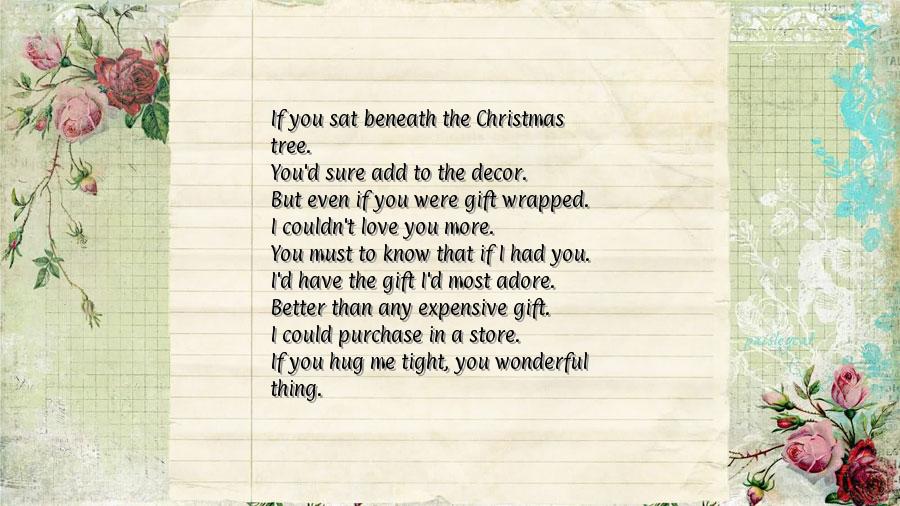 If you sat beneath the Christmas
tree.
You'd sure add to the decor.
But even if you were gift wrapped.
I couldn't love you more.
You must to know that if I had you.
I'd have the gift I'd most adore.
Better than any expensive gift.
I could purchase in a store.
If you hug me tight, you wonderful
thing.
paisleycat